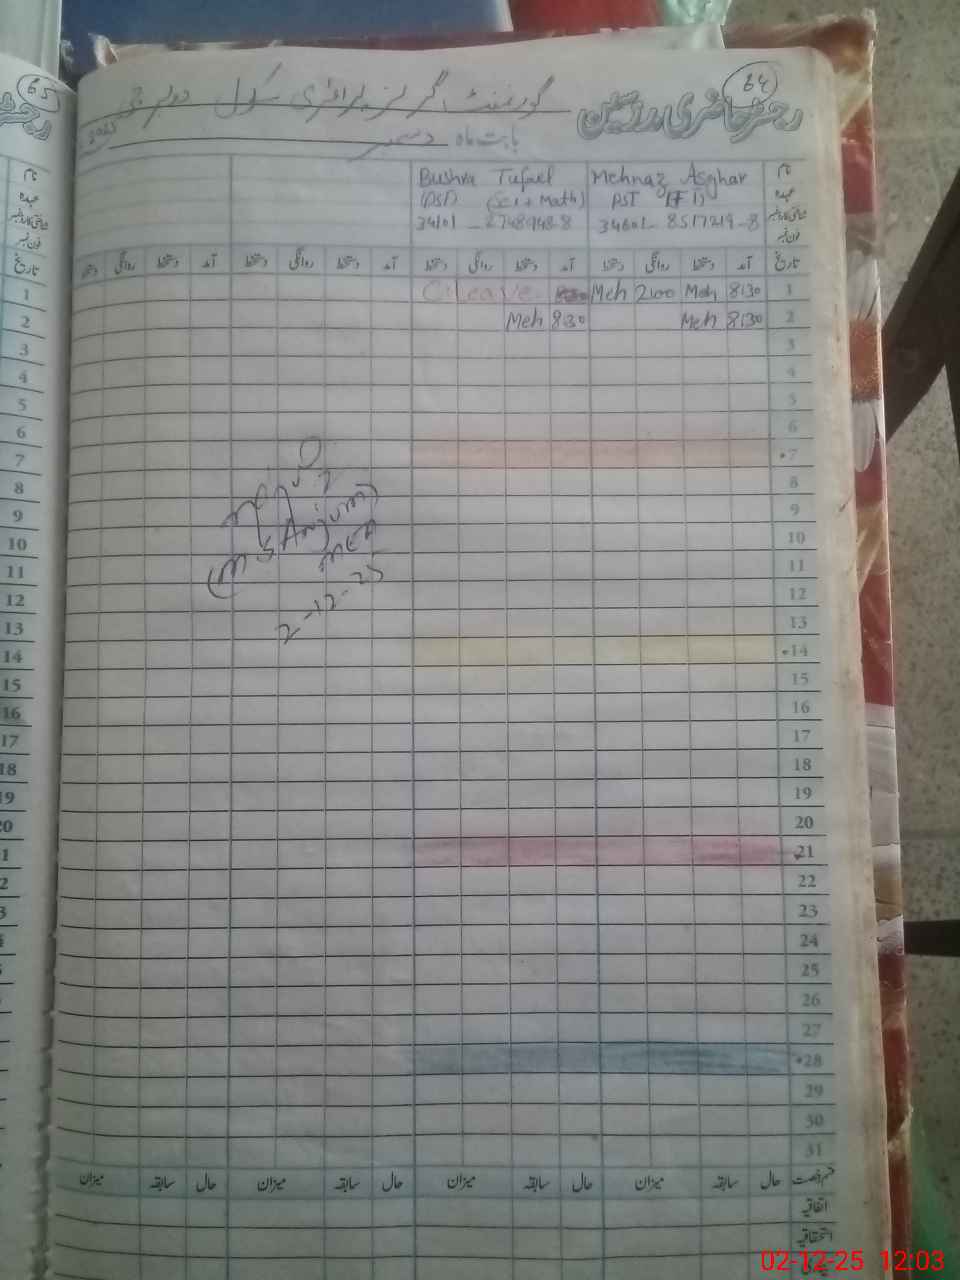 65
64
رجسٹر حاضری مدرسین
گورنمنٹ گرلز پرائمری سکول
بابت ماہ دسمبر
نام
Mehnaz Asghar
Bushra Tufael
عہدہ
PST
(PST) (Sci + Math)
شناختی کارڈ نمبر
34101
فون نمبر
تاریخ آمد دستخط روانگی دستخط آمد دستخط روانگی دستخط آمد دستخط روانگی دستخط آمد دستخط روانگی دستخط
1 8:30 Meh 2:00 Meh C.Leave
2 8:30 Meh 8:30 Meh
3
4
5
6
7
8
9
10
11
12
13
14
15
16
17
18
19
20
21
22
23
24
25
26
27
28
29
30
31
(M S Anjum)
MEA
2-12-25
قسم رخصت حال سابقہ میزان حال سابقہ میزان حال سابقہ میزان حال سابقہ میزان
اتفاقیہ
استحقاقیہ
02-12-25 12:03